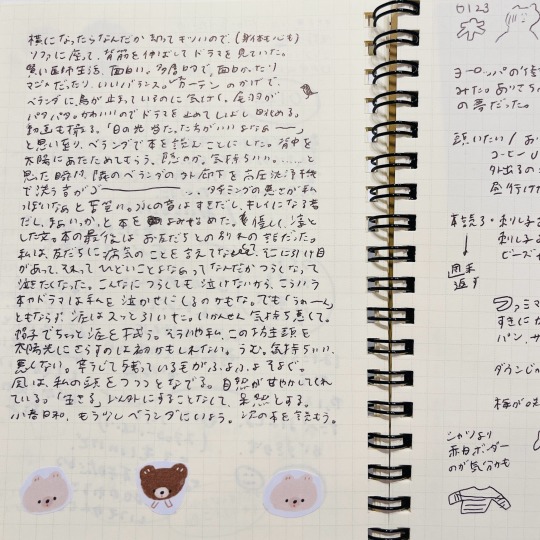 横になったらなんだか却ってキツいので、(身体も心も)
ソファに座って、背筋を伸ばしてドラマを見ていた。
賢い医師生活、面白い。多層的で、面白かったり
マジメだったり、いいバランス。カーテンのかげで、
ベランダに鳥が止まっているのに気付く。尾羽が
パタパタ。かわいいのでドラマを止めてしばし眺める。
動画も撮る。「日の光当たった方がいいよなぁ〜」
と思い至り、ベランダで本を読んことにした。背中を
太陽にあたためてもらう。陽のが。気持ちいい。……と
思った瞬間、隣のベランダの外廊下を高圧洗浄機
で洗う音がゴ――――…、タイミングの悪さが私
っぽいなあと苦笑い。つしの音はすきだし、キレイになる音
だし、まあいっか、と本をよみ始めた。優しく、凛と
した文。本の最後はお友だちとの別れの話だった。
私は、友だちに病気のことを言えてなくて、そこに引け目
があって、それってひどいことよなあってなんだかつらくなって
泣きたくなった。こんなにつらくても泣けないから、こういう
本やドラマは私を泣かせにくるのかもな。でも「うわ〜ん」
ともならず、涙はスッと引いた。いかんせん気持ち悪くて。
帽子でちょっと涙を拭う。そういや私、この坊主頭を
太陽光にさらすのは初かもしれない。うむ。気持ちいい、
悪くない。辛うじて残っている毛がふよふよそよぐ。
風は、私の頭をつつつとなでる。自然が甘やかしてくれ
ている。「生きる」以外にすることなくて、呆然とする。
小春日和、もう少しベランダにいよう。次の本を読もう。
0123
ヨーロッパの
みた。ありさ
の夢だった。
頭いたい/お
コーヒー
外出る
本読了・刺し子
刺し子
ビーズ
図書
返す
ファミマ
すきに
パン、サ
ダウンじ
梅が咲
シャツより
赤白ボーダー
の気分かも